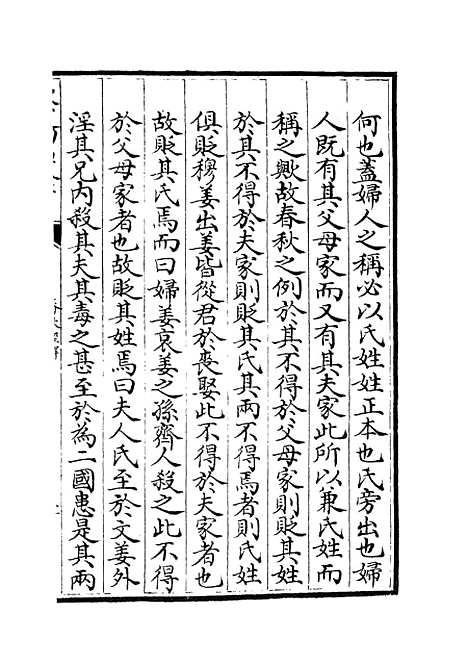 何也蓋婦人之稱必以氏姓姓正本也氏旁出也婦
人既有其父母家而又有其夫家此所以兼氏姓而
稱之歟故春秋之例於其不得於父母家則貶其姓
於其不得於夫家則貶其氏其兩不得焉者則氏姓
俱貶穆姜出姜皆從君於喪娶此不得於夫家者也
故貶其氏焉而曰婦姜哀姜之孫齊人殺之此不得
於父母家者也故貶其姓焉曰夫人氏至於文姜外
淫其兄内殺其夫其毒之甚至於為二國患是其兩